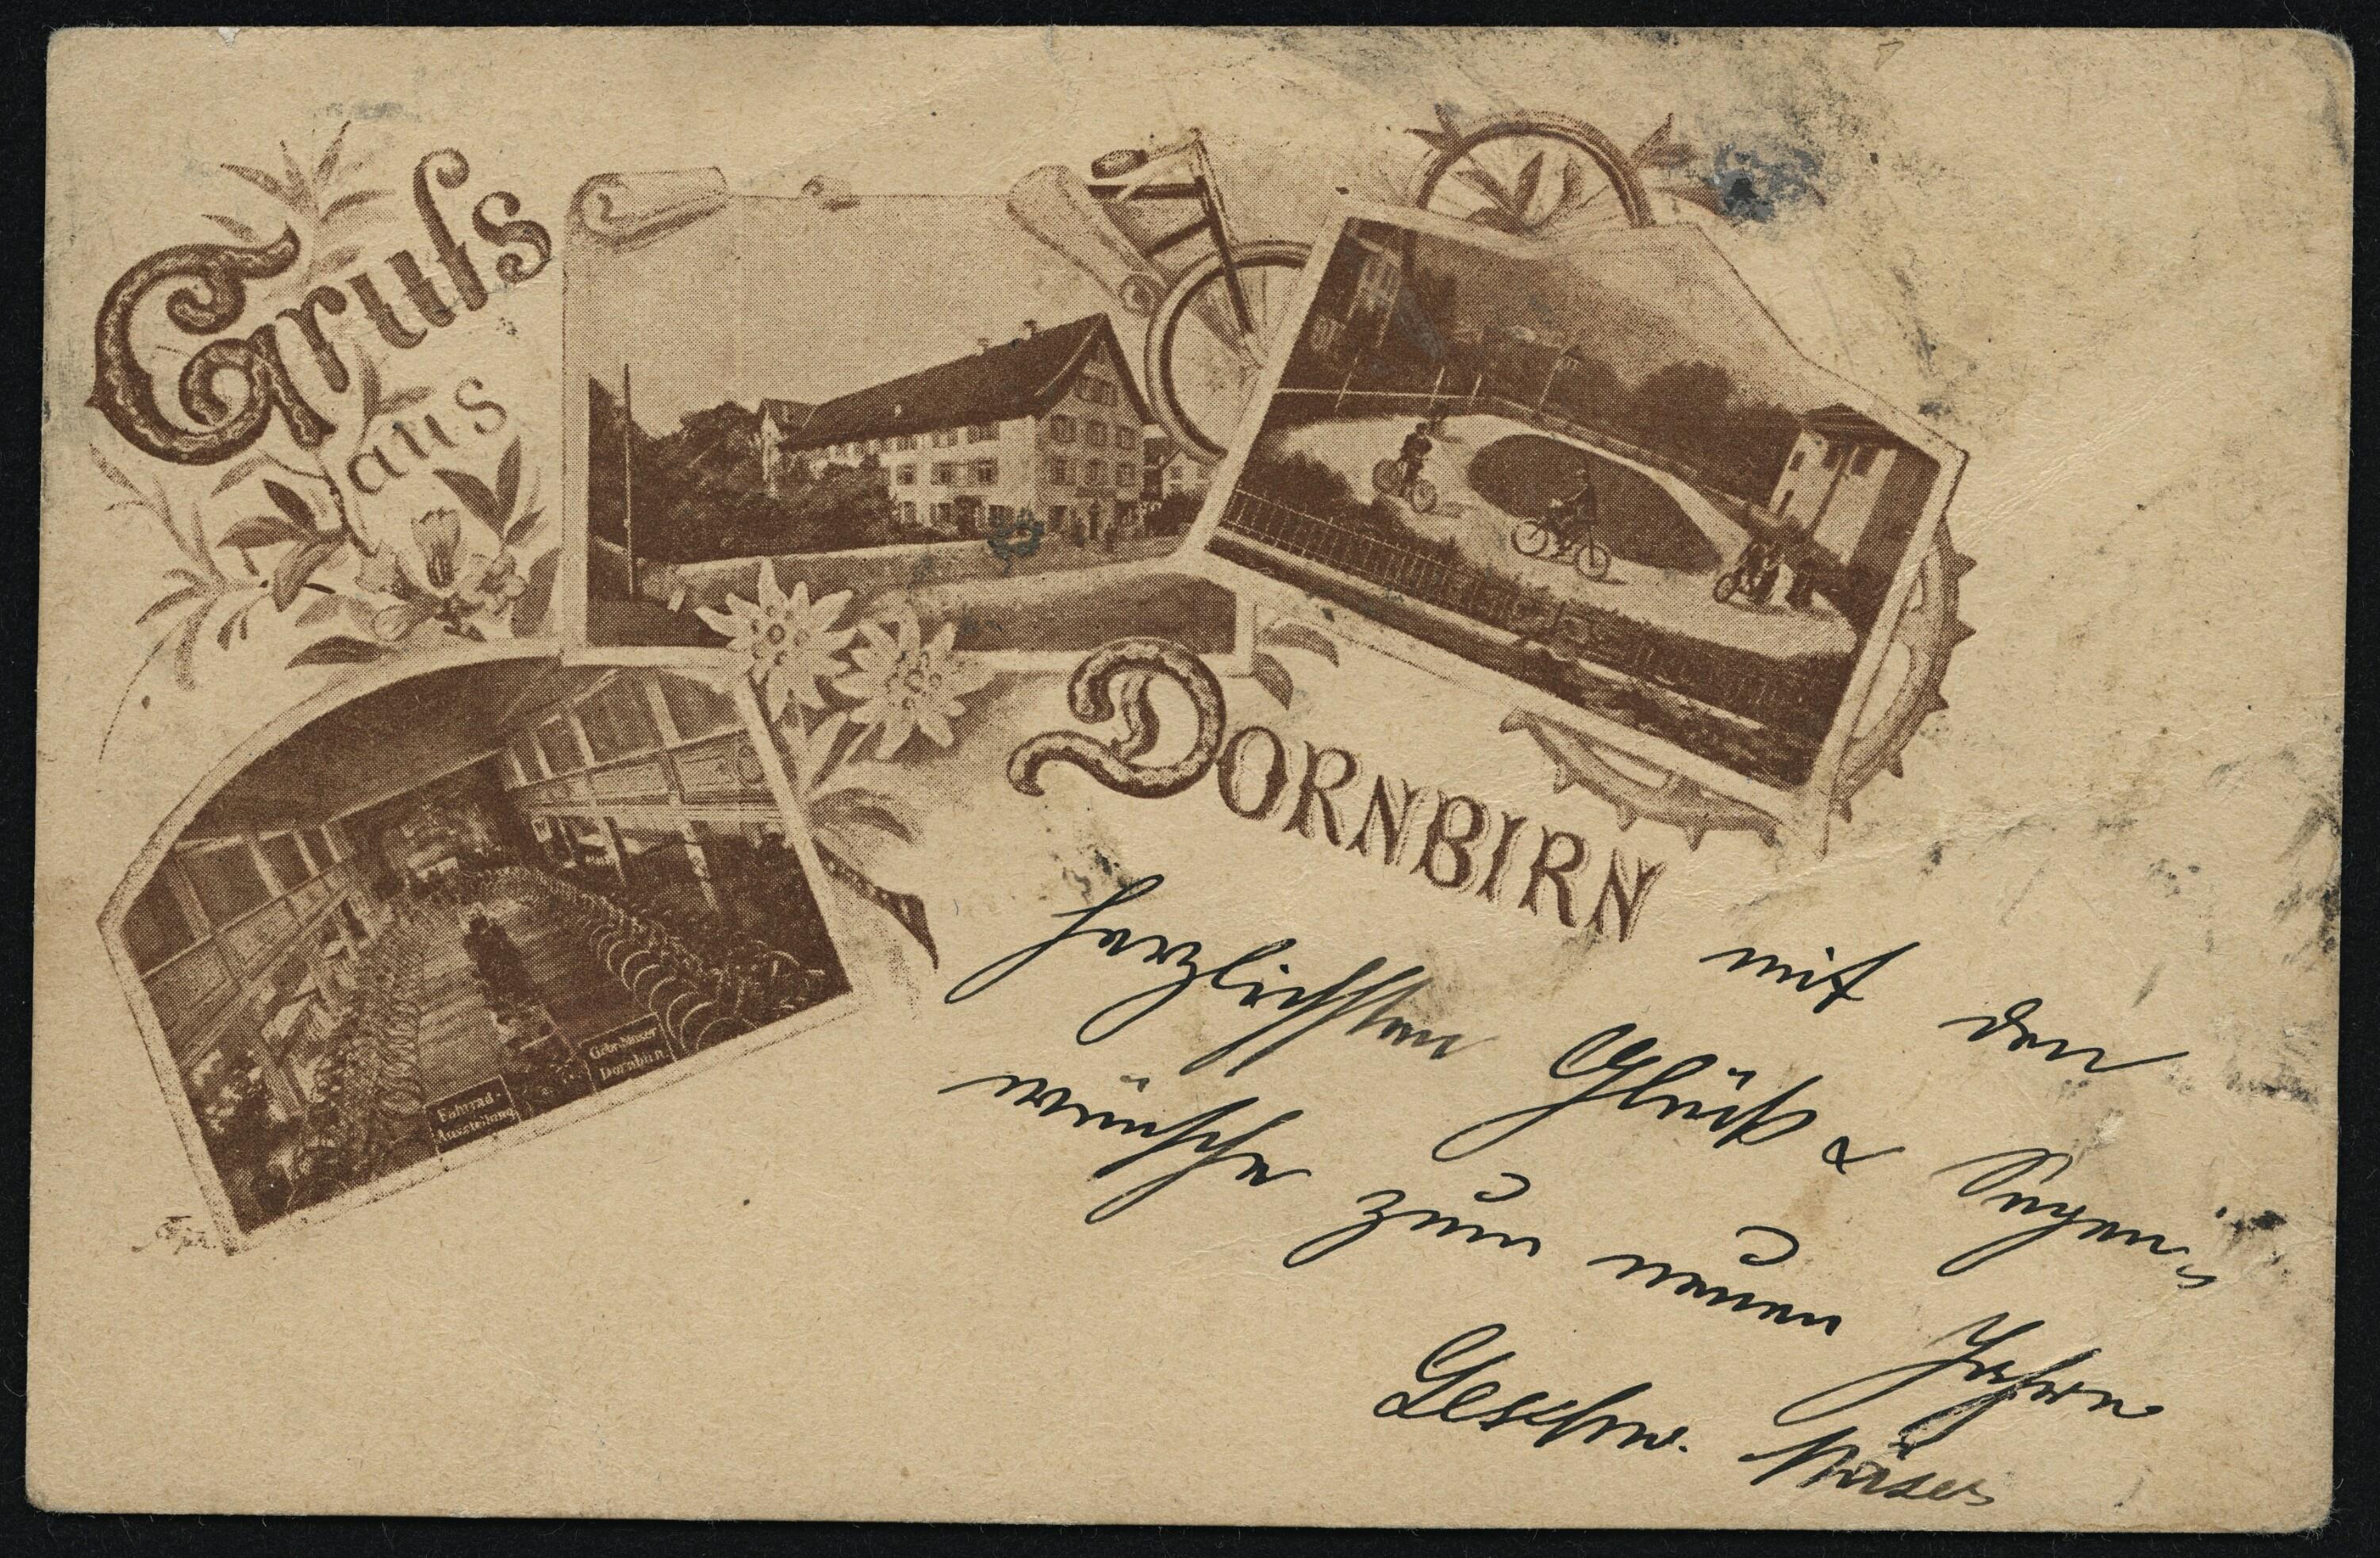 Gruss
aus
DORNBIRN
Fahrrad-
Ausstellung
Gebr. Moser
Dornbirn.
mit den
herzlichsten Glück & Segens
wünsche zum neuen Jahre
Geschw.